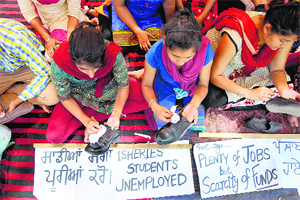 ਸਾਡੀਆਂ ਮੰਗਾਂ
ਪੂਰੀਆਂ ਕਰੋ
FISHERIES
STUDENTS
UNEMPLOYED
PLENTY of JOBS
but
Scarcity of FUNDS